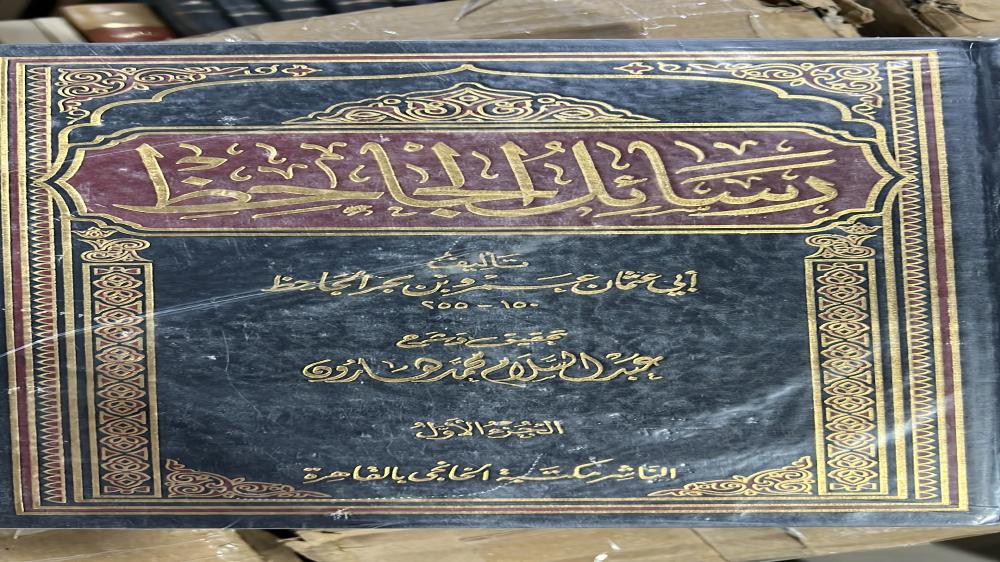 رسائل الجاحظ
تأليف
أبي عثمان عمرو بن بحر الجاحظ
١٥٠ - ٢٥٥
تحقيق وشرح
عبد السلام محمد هارون
الجزء الأول
الناشر مكتبة الخانجى بالقاهرة